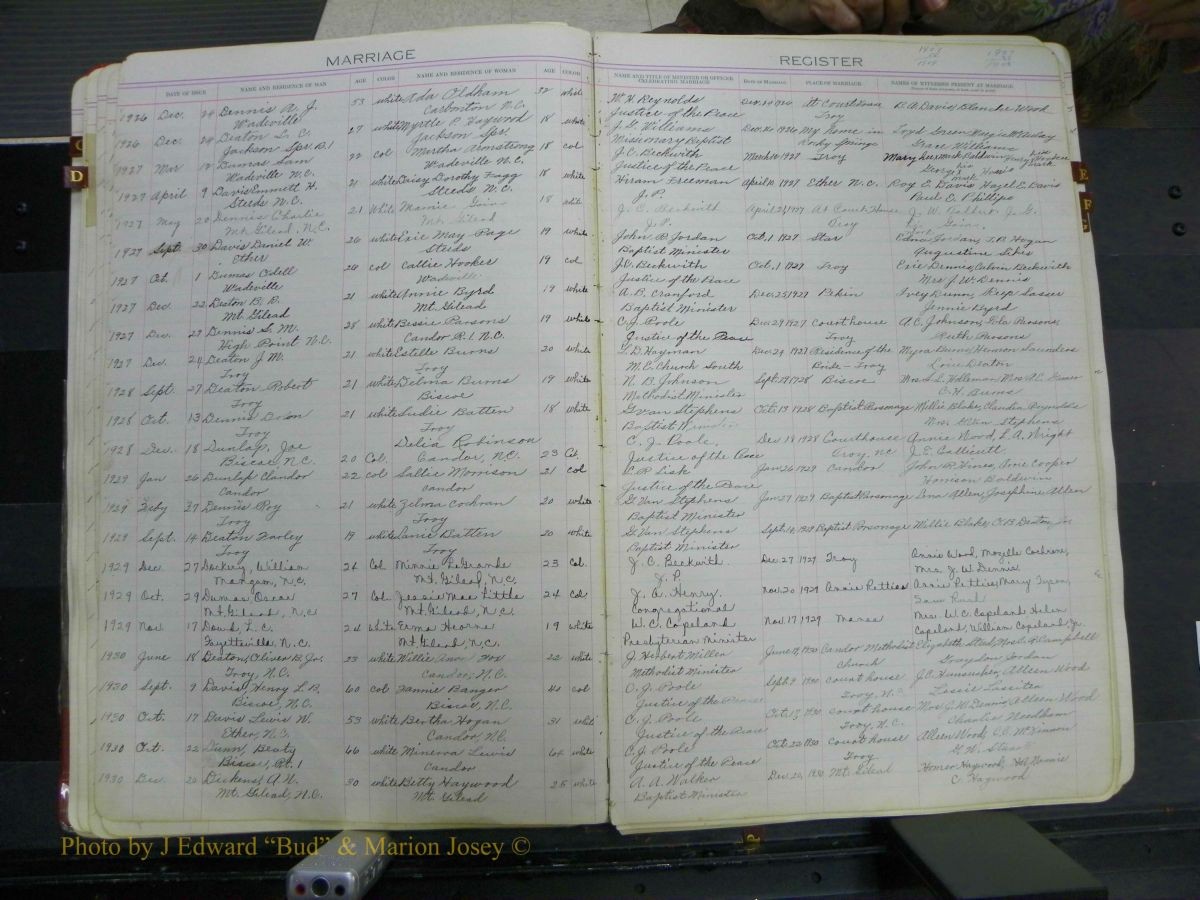 MARRIAGE
DATE OF ISSUE NAME AND RESIDENCE OF MAN AGE COLOR NAME AND RESIDENCE OF WOMAN AGE COLOR
1926 Dec. 24 Dennis A. J. 53 white Ada Oldham 32 white
Wadeville Carbonton N.C.
1926 Dec. 24 Deaton L. C. 27 white Myrtle P. Haywood 18 white
Jackson Spr. R.1 Jackson Spr.
1927 Mar 12 Dumas Sam 22 col Martha Armstrong 18 col
Wadeville N.C. Wadeville N.C.
1927 April 9 Davis Emmett H. 21 white Daisy Dorothy Fagg 18 white
Steeds N.C. Steeds N.C.
1927 May 20 Dennis Charlie 21 white Mamie 18 white
Mt. Gilead, N.C. Mt. Gilead
1927 Sept. 30 Davis Daniel W. 26 white Evie May Page 19 white
Ether Steeds
1927 Oct. 1 Dumas Odell 24 col Callie Hooker 19 col
Wadeville Wadeville
1927 Dec. 22 Deaton B. B. 21 white Annie Byrd 19 white
Mt. Gilead Mt. Gilead
1927 Dec. 29 Dennis G. M. 28 white Bessie Parsons 19 white
High Point N.C. Candor R.1. N.C.
1927 Dec. 24 Deaton J. M. 21 white Estelle Burns 20 white
Troy Troy
1928 Sept. 27 Deaton Robert 21 white Delma Burns 19 white
Troy Biscoe
1928 Oct. 13 Dennis 21 white Sudie Batten 18 white
Troy Troy
1928 Dec. 18 Dunlap, Joe 20 Col. Delia Robinson 23 Col.
Biscoe N.C. Candor, N.C.
1929 Jan 26 Dunlap Clandor 22 col Sallie Morrison 21 col
Candor Candor
1929 Feby 27 Dennis Roy 21 white Zelma Cochran 20 white
Troy Troy
1929 Sept. 14 Deaton Farley 19 white Janie Batten 20 white
Troy Troy
1929 Dec. 27 Dockery, William 24 Col. Minnie LeGrande 23 col.
Mangum, N.C. Mt. Gilead, N.C.
1929 Oct. 29 Dumas, Oscar 27 Col. Jessie Mae Little 24 col
Mt. Gilead, N.C. Mt. Gilead, N.C.
1929 Nov. 17 Doud, L. C. 24 white Erma Hearne 19 white
Fayetteville, N.C. Mt. Gilead N.C.
1930 June 18 Deaton, Oliver B. Jr. 23 white Willie 22 white
Troy, N.C. Candor, N.C.
1930 Sept. 9 Davis, Henry L. B. 60 col Fannie Banger 40 col
Biscoe, N.C. Biscoe, N.C.
1930 Oct. 17 Davis Lewis W. 53 white Bertha Hogan 31 white
Ether, N.C. Candor, N.C.
1930 Oct. 22 Dunn, Beaty 66 white Minerva Lewis white
Biscoe, Rt. 1 Candor
1930 Dec. 20 Dickens, A. W. 30 white Betty Haywood 25 white
Mt. Gilead, N.C. Mt. Gilead
REGISTER
NAME AND TITLE OF MINISTER OR OFFICER CELEBRATING MARRIAGE DATE OF MARRIAGE PLACE OF MARRIAGE NAMES OF WITNESSES PRESENT AT MARRIAGE
W. H. Reynolds At Courthouse R. A. Davis, Blanche Wood
Justice of the Peace Troy
J. G. Williams Dec. 26 1926 My home in
Missionary Baptist Rocky Springs Grace Williams
J. C. Beckwith March 12 1927 Troy
Justice of the Peace
Hiram Freeman April 10, 1927 Ether N.C. Roy E. Davis Hazel E. Davis
J. P. Paul C. Phillips
J. C. Beckwith April 1927 At Court House
Troy
John P. Jordan Oct. 1 1927 Star Edna Jordan, J. R. Hogan
Baptist Minister Augustine Sikes
J. C. Beckwith Oct. 1 1927 Troy Evie Dennis, Calvin Beckwith
Justice of the Peace Mrs J. W. Dennis
A. B. Cranford Dec. 25 1927 Pekin Ivey Dunn,
Baptist Minister Jennie Byrd
C. J. Poole Dec 29 1927 Courthouse A. C. Johnson, Eda Parsons,
Justice of the Peace Troy Ruth Parsons
L. D. Hayman Dec 24 1927 Residence of the Myra Burns, Herman Saunders
M. E. Church South Bride - Troy Deaton
N. B. Johnson Sept. 29 1928 Biscoe
Methodist Minister C. H. Burns
G. Van Stephens Oct. 13 1928 Baptist Parsonage Willie Blake, Claudia Reynolds
Baptist Minister Mrs. G. Van Stephens
C. J. Poole, Dec 18 1928 Courthouse Annie Wood, L. A. Wright
Justice of the Peace Troy, NC
C. P. Lisk Jan 26 1929 Candor John P. Hines, Cooper
Justice of the Peace Baldwin
G. Van Stephens Jan 27 1929 Baptist Parsonage Lena Allen, Josephine Allen
Baptist Minister
G. Van Stephens Sept. 14, 1929 Baptist Parsonage Willie Blake, O. B. Deaton, Jr.
Baptist Minister
J. C. Beckwith Dec 27 1929 Troy Annie Wood, Mozelle Cochran,
J. P. Mrs. J. W. Dennis
J. A. Henry. Nov. 20 1929 Annie Petties Annie Petties, Mary Tyson,
Congregational Sam Rush
W. C. Copeland Nov. 17 1929 Manse Mrs. W. C. Copeland Helen
Presbyterian Minister Copeland, William Copeland, Jr.
J. Herbert Miller June 1930 Candor Methodist Elizabeth Campbell
Methodist Minister church Jordan
C. J. Poole Sept. 9 1930 Court house J. C. Hunsucker, Alleen Wood
Justice of the Peace Troy, N.C. Lessie Lassiter
C. J. Poole Oct. 17 1930 Court house Mrs. J. W. Dennis, Alleen Wood
Justice of the Peace Troy, N.C. Charlie Needham
C. J. Poole Oct. 22 1930 Court house Alleen Wood, C. C. McKinnon
Justice of the Peace Troy
A. A. Walker Dec. 20, 1930 Mt. Gilead Homer Haywood,
Baptist Minister C. Haywood
D
E
F
Photo by J Edward "Bud" & Marion Josey ©